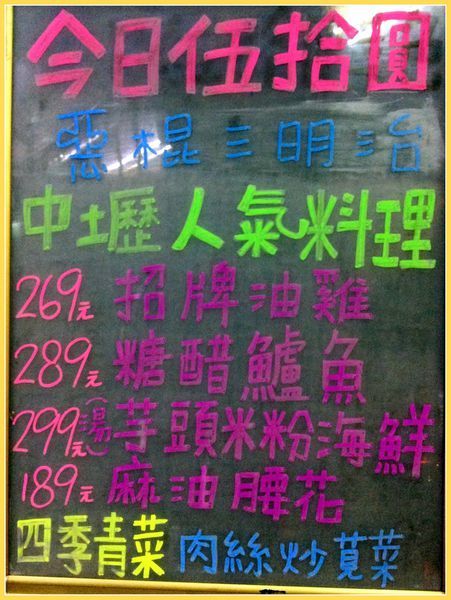 今日伍拾圓
惡棍三明治
中壢人氣料理
269元 招牌油雞
289元 糖醋鱸魚
299元(湯)芋頭米粉海鮮
189元 麻油腰花
四季青菜 肉絲炒莧菜